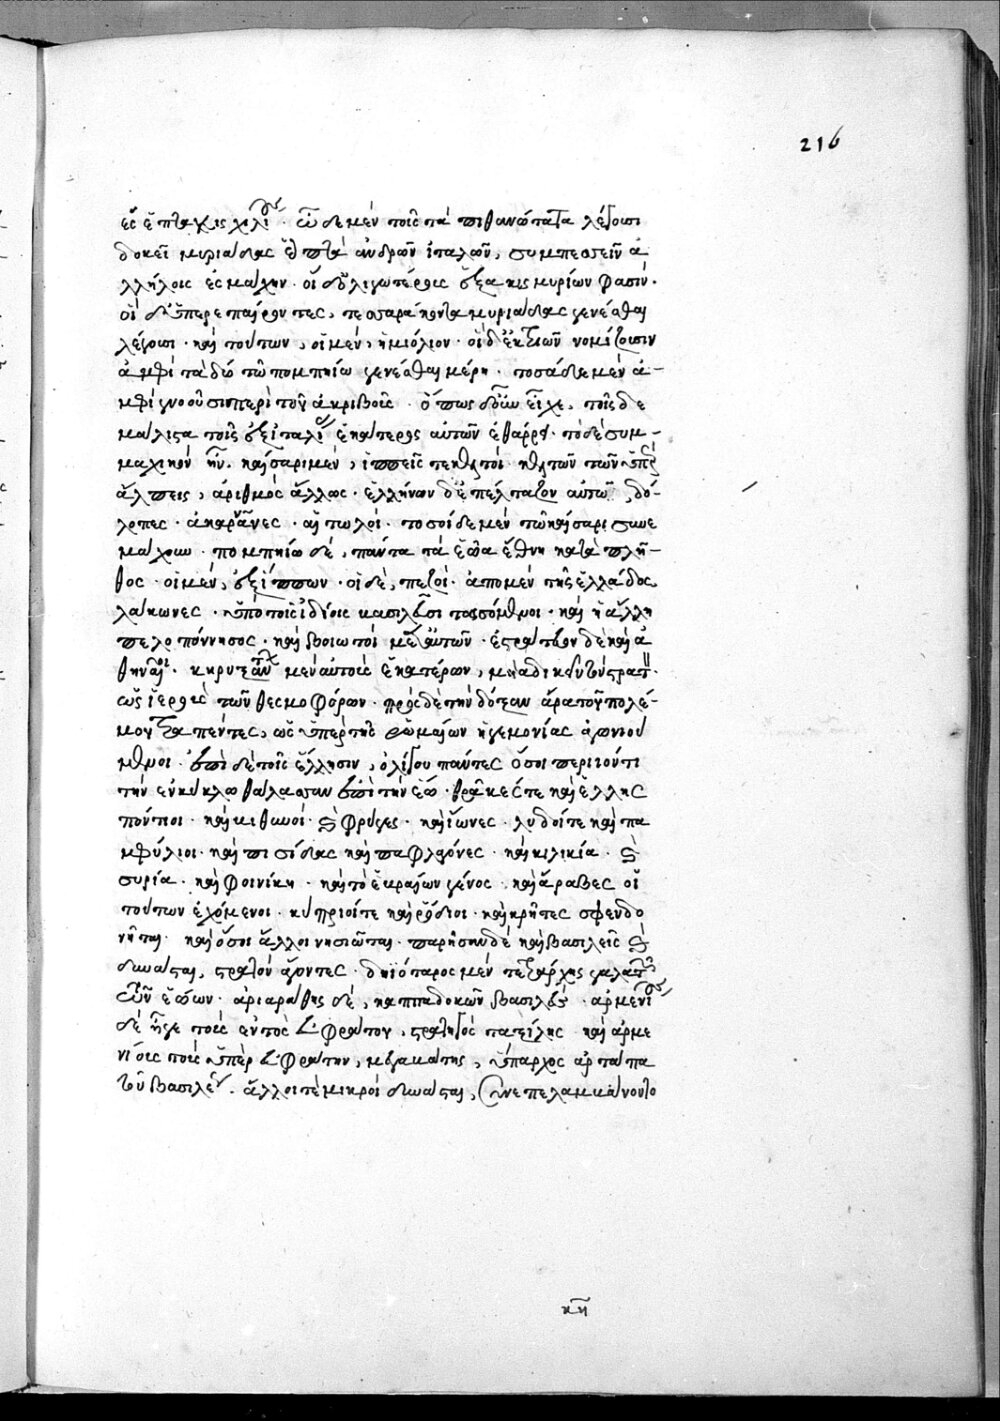 216
ἐς ἑπτακισχιλίους. ὧδε μὲν τοῖς τὰ πιθανώτατα λέγουσι
δοκεῖ μυριάδας ἑπτὰ ἀνδρῶν ἰταλῶν, συμπεσεῖν ἀ
λλήλοις ἐς μάχην. οἱ δ' ὀλιγωτέροις ἑξακισμυρίων φασίν.
οἱ δ' ὑπερεπαίροντες, τεσσαράκοντα μυριάδας γενέσθαι
λέγουσι. καὶ τούτων, οἱ μὲν, ἡμιόλιον. οἱ δ' ἐκ τριῶν νομίζουσιν
ἀμφὶ τὰ δύο τῶ πομπηίω γενέσθαι μέρη. τοσάδε μὲν ἀ-
μφιγνοοῦσι περὶ τοῦ ἀκριβοῦς. ὅπως δ' οὖν εἶχε, τοῖς δὲ
μάλιστα τοῖς ἐξ ἰταλίας ἑκάτερος αὐτῶν ἐθάρρει. τὸ δὲ συμ-
μαχικὸν ἦν. καίσαρι μὲν, ἱππεῖς τε κελτοὶ κελτῶν τῶν ὑπὲρ
ἄλπεις, ἀριθμὸς ἄλλος. ἑλλήνων δ' ἐπέλταζον αὐτῶ, δό-
λοπες. ἀκαρνᾶνες. αἰτωλοί. τοσοίδε μὲν τῶ καίσαρι συνε
μάχουν. πομπηίω δὲ, πάντα τὰ ἑῶα ἔθνη κατὰ πλῆ-
θος. οἱ μὲν, ἐξ ἵππων. οἱ δὲ, πεζοί. ἀπὸ μὲν τῆς ἑλλάδος
λάκωνες. ὑπὸ τοῖς ἰδίοις βασιλεῦσι τασσόμενοι. καὶ ἡ ἄλλη
πελοπόννησος. καὶ βοιωτοὶ μετ' αὐτῶν. ἐστράτευον δὲ καὶ ἀ
θηναῖοι. κηρυξάντων μὲν αὐτοὺς ἑκατέρων, μὴ ἀδικεῖν τὸν στρατὸν
ὡς ἱεροὺς τῶν θεσμοφόρων. πρὸς δὲ τὴν δόξαν ἄρα τοῦ πολέ-
μου τραπέντες, ὡς ὑπὲρ τῆς ῥωμαίων ἡγεμονίας ἀγωνιού
μενοι. ἐπὶ δὲ τοῖς ἕλλησιν, ὀλίγου πάντες ὅσοι περιιόντι
τὴν ἐν κύκλω θάλασσαν ἐπὶ τὴν ἕω. θρᾶκές τε καὶ ἑλλης
πόντιοι. καὶ βιθυνοί. καὶ φρύγες. καὶ ἴωνες. λυδοί τε καὶ πα
μφύλιοι. καὶ πισίδας καὶ παφλαγόνες. καὶ κιλικία. καὶ
συρία. καὶ φοινίκη. καὶ τὸ ἑβραίων γένος. καὶ ἄραβες οἱ
τούτων ἐχόμενοι. κύπριοί τε καὶ ῥόδιοι. καὶ κρῆτες σφενδο
νῆται. καὶ ὅσοι ἄλλοι νησιῶται. παρῆσαν δὲ καὶ βασιλεῖς καὶ
δυνάσται, στρατὸν ἄγοντες. δηϊόταρος μὲν τετράρχης γαλατῶν
τῶν ἑώων. ἀριαράθης δὲ, καππαδοκῶν βασιλεύς. ἀρμενίους
δὲ ἦγε τοὺς ἐντὸς εὐφράτου, στρατηγὸς ταξίλης. καὶ ἀρμε
νίους τοὺς ὑπὲρ εὐφράτην, μεγαβάτης, ὕπαρχος ἀρταπά
του βασιλέως. ἄλλοι τε μικροὶ δυνάσται, συνεπελαμβάνοντο
κη